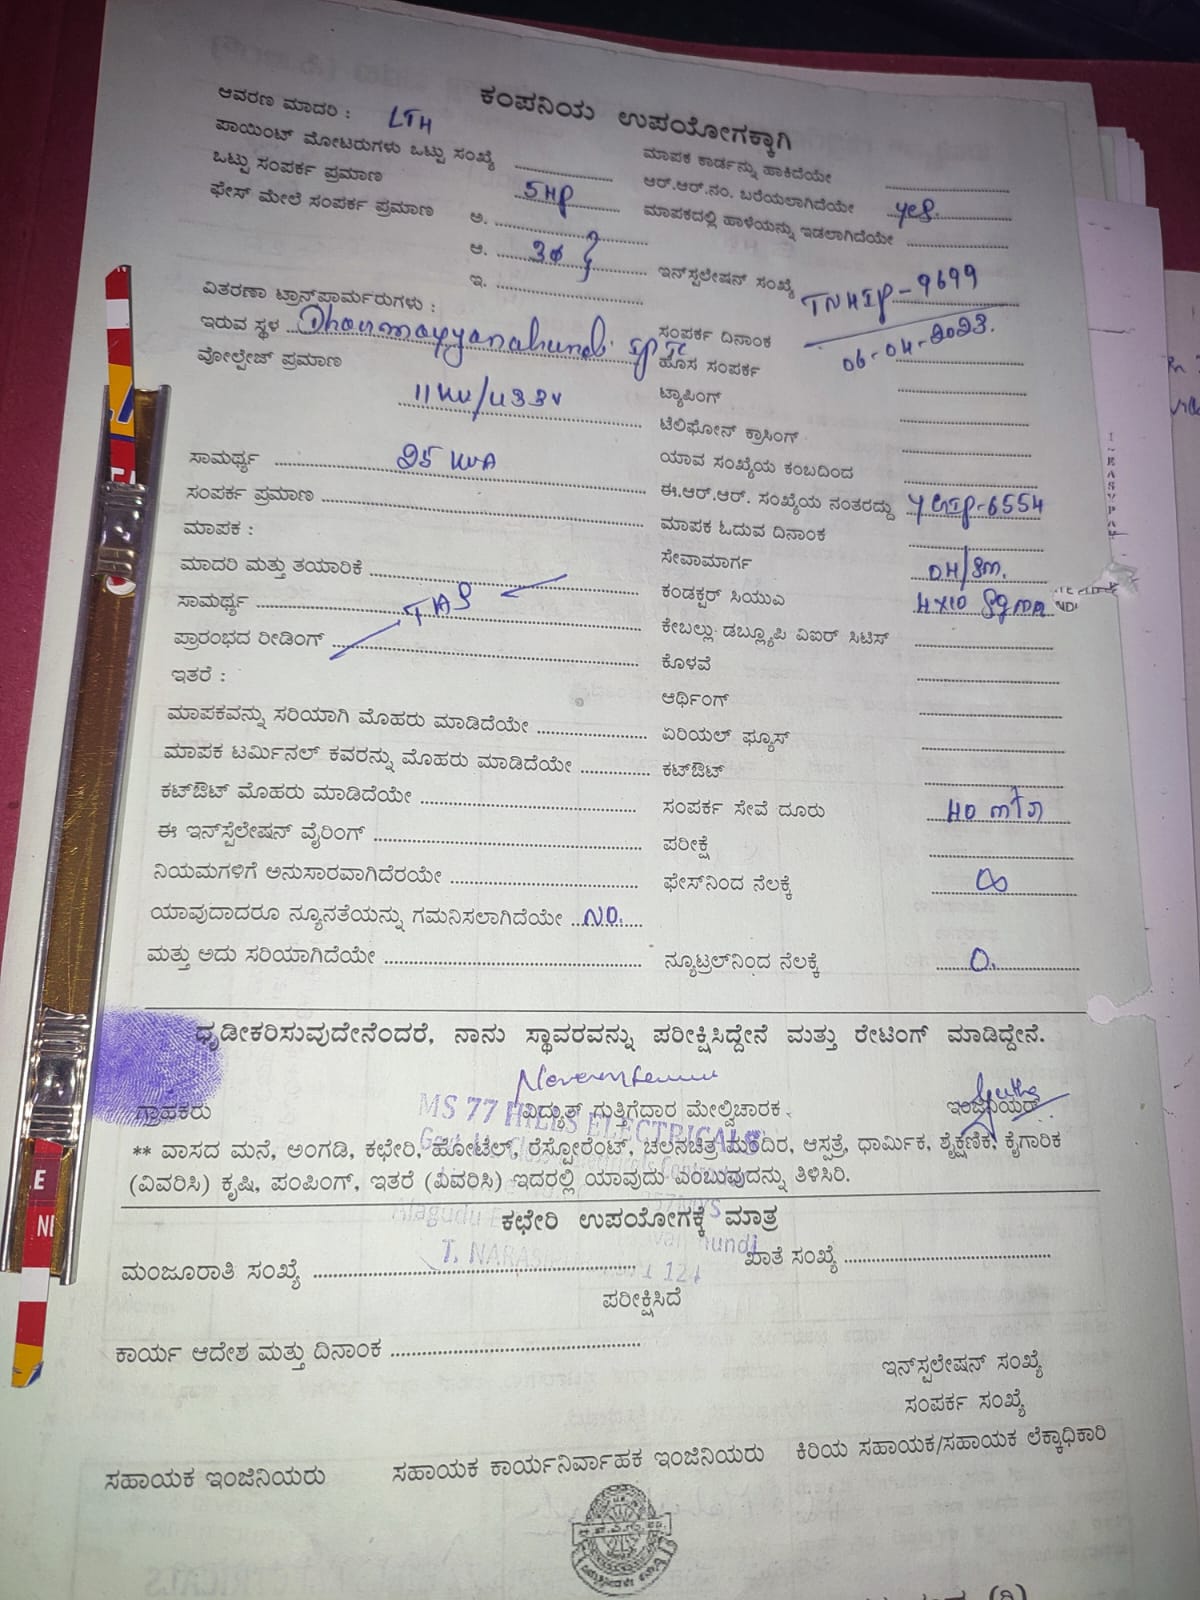 ಕಂಪನಿಯ ಉಪಯೋಗಕ್ಕಾಗಿ
ಆವರಣ ಮಾದರಿ : LTH
ಪಾಯಿಂಟ್ ಮೋಟರುಗಳು ಒಟ್ಟು ಸಂಖ್ಯೆ
ಒಟ್ಟು ಸಂಪರ್ಕ ಪ್ರಮಾಣ 5HP
ಫೇಸ್ ಮೇಲೆ ಸಂಪರ್ಕ ಪ್ರಮಾಣ ಅ.
ಆ. 3Φ
ಇ.
ವಿತರಣಾ ಟ್ರಾನ್ಸ್‌ಫಾರ್ಮರುಗಳು :
ಇರುವ ಸ್ಥಳ
ವೋಲ್ಟೇಜ್ ಪ್ರಮಾಣ
11KV/433V
ಸಾಮರ್ಥ್ಯ 25 KVA
ಸಂಪರ್ಕ ಪ್ರಮಾಣ
ಮಾಪಕ :
ಮಾದರಿ ಮತ್ತು ತಯಾರಿಕೆ
ಸಾಮರ್ಥ್ಯ
ಪ್ರಾರಂಭದ ರೀಡಿಂಗ್
ಇತರೆ :
ಮಾಪಕವನ್ನು ಸರಿಯಾಗಿ ಮೊಹರು ಮಾಡಿದೆಯೇ
ಮಾಪಕ ಟರ್ಮಿನಲ್ ಕವರನ್ನು ಮೊಹರು ಮಾಡಿದೆಯೇ
ಕಟ್‌ಔಟ್ ಮೊಹರು ಮಾಡಿದೆಯೇ
ಈ ಇನ್‌ಸ್ಪೆಲೇಷನ್ ವೈರಿಂಗ್
ನಿಯಮಗಳಿಗೆ ಅನುಸಾರವಾಗಿದೆರಯೇ
ಯಾವುದಾದರೂ ನ್ಯೂನತೆಯನ್ನು ಗಮನಿಸಲಾಗಿದೆಯೇ NO.
ಮತ್ತು ಅದು ಸರಿಯಾಗಿದೆಯೇ
ಮಾಪಕ ಕಾರ್ಡನ್ನು ಹಾಕಿದೆಯೇ
ಆರ್.ಆರ್.ನಂ. ಬರೆಯಲಾಗಿದೆಯೇ yes.
ಮಾಪಕದಲ್ಲಿ ಹಾಳೆಯನ್ನು ಇಡಲಾಗಿದೆಯೇ
ಇನ್‌ಸ್ಪಲೇಷನ್ ಸಂಖ್ಯೆ TNHIP-9699
ಸಂಪರ್ಕ ದಿನಾಂಕ 06-04-2023.
ಹೊಸ ಸಂಪರ್ಕ
ಟ್ಯಾಪಿಂಗ್
ಟೆಲಿಫೋನ್ ಕ್ರಾಸಿಂಗ್
ಯಾವ ಸಂಖ್ಯೆಯ ಕಂಬದಿಂದ
ಈ.ಆರ್.ಆರ್. ಸಂಖ್ಯೆಯ ನಂತರದ್ದು YGIP-6554
ಮಾಪಕ ಓದುವ ದಿನಾಂಕ
ಸೇವಾಮಾರ್ಗ OH/Sm.
ಕಂಡಕ್ಟರ್ ಸಿಯುವಿ 4x10 Sqmm
ಕೇಬಲ್ಲು ಡಬ್ಲ್ಯೂಪಿ ವಿಐರ್ ಸಿಟಿಸ್
ಕೊಳವೆ
ಆರ್ಥಿಂಗ್
ಏರಿಯಲ್ ಫ್ಯೂಸ್
ಕಟ್‌ಔಟ್
ಸಂಪರ್ಕ ಸೇವೆ ದೂರು 40 mtr
ಪರೀಕ್ಷೆ
ಫೇಸ್‌ನಿಂದ ನೆಲಕ್ಕೆ ∞
ನ್ಯೂಟ್ರಲ್‌ನಿಂದ ನೆಲಕ್ಕೆ 0.
ಧೃಡೀಕರಿಸುವುದೇನೆಂದರೆ, ನಾನು ಸ್ಥಾವರವನ್ನು ಪರೀಕ್ಷಿಸಿದ್ದೇನೆ ಮತ್ತು ರೇಟಿಂಗ್ ಮಾಡಿದ್ದೇನೆ.
ಗ್ರಾಹಕರು ವಿದ್ಯುತ್ ಗುತ್ತಿಗೆದಾರ ಮೇಲ್ವಿಚಾರಕ ಇಂಜಿನಿಯರ್
MS 77 HILLS ELECTRICALS
** ವಾಸದ ಮನೆ, ಅಂಗಡಿ, ಕಛೇರಿ, ಹೋಟೆಲ್, ರೆಸ್ಟೋರೆಂಟ್, ಚಲನಚಿತ್ರ ಮಂದಿರ, ಆಸ್ಪತ್ರೆ, ಧಾರ್ಮಿಕ, ಶೈಕ್ಷಣಿಕ, ಕೈಗಾರಿಕ
(ವಿವರಿಸಿ) ಕೃಷಿ, ಪಂಪಿಂಗ್, ಇತರೆ (ವಿವರಿಸಿ) ಇದರಲ್ಲಿ ಯಾವುದು ಎಂಬುವುದನ್ನು ತಿಳಿಸಿರಿ.
ಕಛೇರಿ ಉಪಯೋಗಕ್ಕೆ ಮಾತ್ರ
ಮಂಜೂರಾತಿ ಸಂಖ್ಯೆ ಖಾತೆ ಸಂಖ್ಯೆ
ಪರೀಕ್ಷಿಸಿದೆ
ಕಾರ್ಯ ಆದೇಶ ಮತ್ತು ದಿನಾಂಕ
ಇನ್‌ಸ್ಪಲೇಷನ್ ಸಂಖ್ಯೆ
ಸಂಪರ್ಕ ಸಂಖ್ಯೆ
ಸಹಾಯಕ ಇಂಜಿನಿಯರು ಸಹಾಯಕ ಕಾರ್ಯನಿರ್ವಾಹಕ ಇಂಜಿನಿಯರು ಕಿರಿಯ ಸಹಾಯಕ/ಸಹಾಯಕ ಲೆಕ್ಕಾಧಿಕಾರಿ